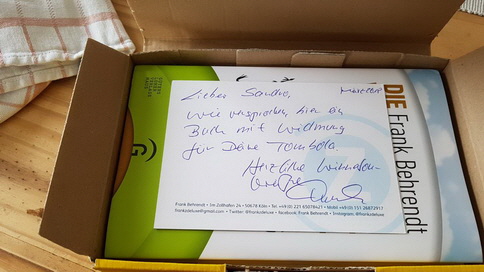 Lieber Sandro,
wie versprochen, hier ein
Buch mit Widmung
für Deine Tombola.
Herzliche Weihnachts-
grüße
Frank Behrendt • Im Zollhafen 24 • 50678 Köln • Tel. +49 (0) 221 65078421 • Mobil +49 (0) 151 26872917
frankzdeluxe@gmail.com • Twitter: @frankzdeluxe • facebook: Frank Behrendt • Instagram: @frankzdeluxe
DIE Frank Behrendt